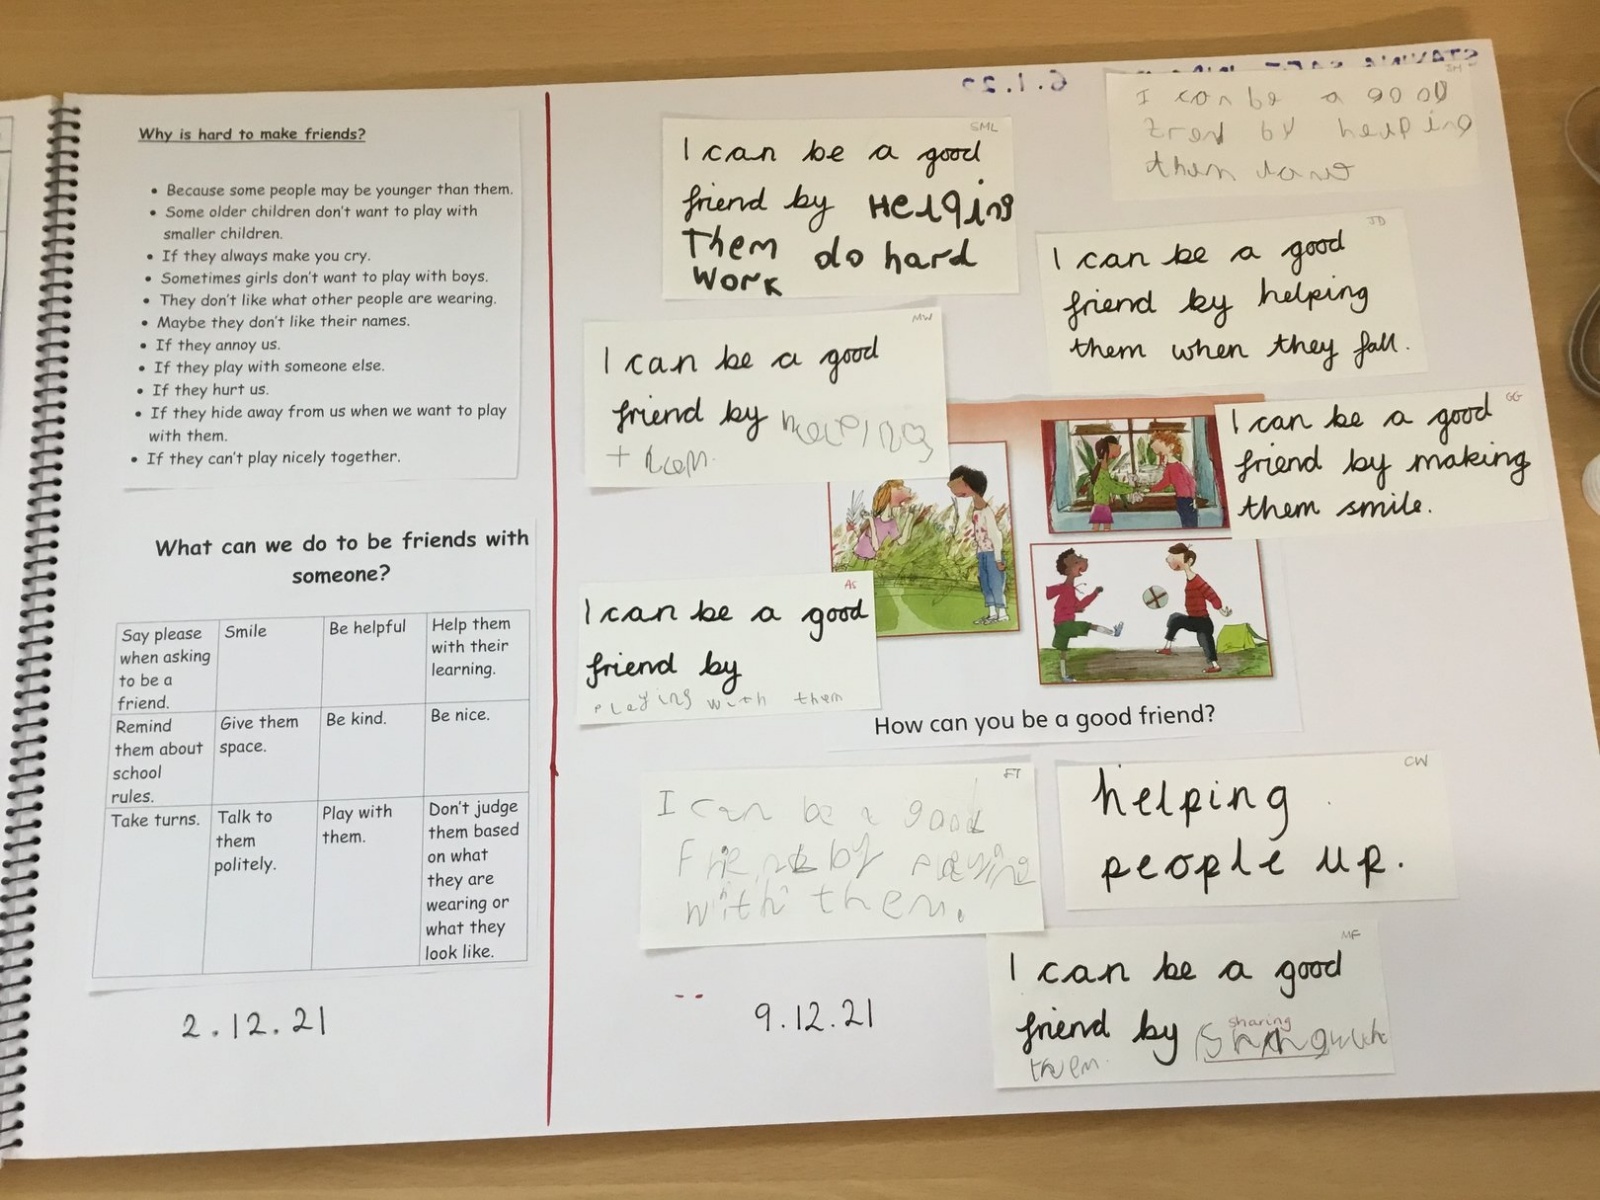 Why is hard to make friends?
• Because some people may be younger than them.
• Some older children don't want to play with
smaller children.
• If they always make you cry.
• Sometimes girls don't want to play with boys.
• They don't like what other people are wearing.
• Maybe they don't like their names.
• If they annoy us.
• If they play with someone else.
• If they hurt us.
• If they hide away from us when we want to play
with them.
• If they can't play nicely together.
What can we do to be friends with
someone?
Say please
when asking
to be a
friend.
Smile
Be helpful
Help them
with their
learning.
Remind
them about
school
rules.
Give them
space.
Be kind.
Be nice.
Take turns.
Talk to
them
politely.
Play with
them.
Don't judge
them based
on what
they are
wearing or
what they
look like.
2.12.21
6.1.22
SML
I can be a good
friend by Helping
Them do hard
Work
JH
I can be a good
by helping
them
JD
I can be a good
friend by helping
them when they fall.
MW
I can be a good
friend by helping
GG
I can be a good
friend by making
them smile.
AS
I can be a good
friend by
playing with them
How can you be a good friend?
FT
I can be a good
Friend by playing
with them.
CW
helping
people up.
MF
I can be a good
friend by
sharing
them.
9.12.21